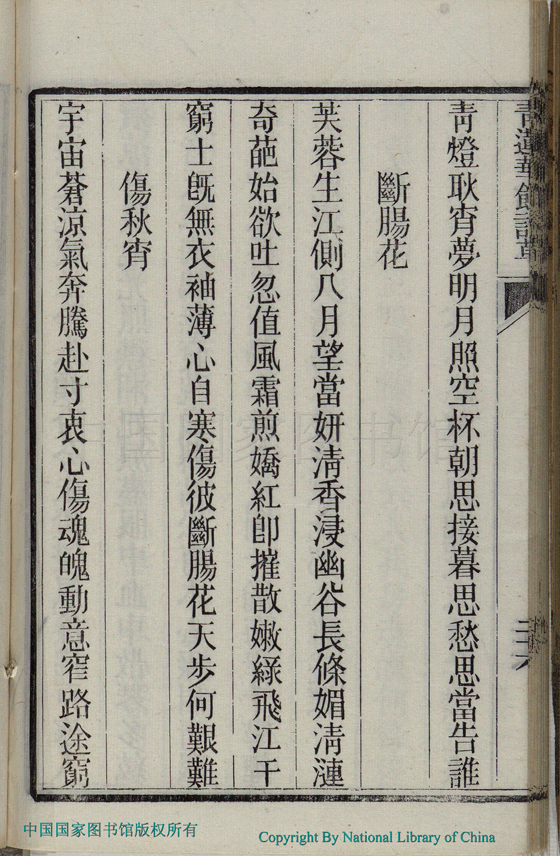 青燈耿宵夢明月照空杯朝思接暮思愁思當告誰
斷腸花
芙蓉生江側八月望當妍淸香浸幽谷長條媚淸漣
奇葩始欲吐忽值風霜煎嬌紅卽摧散嫩綠飛江干
窮士旣無衣袖薄心自寒傷彼斷腸花天步何艱難
傷秋宵
宇宙蒼涼氣奔騰赴寸衷心傷魂魄動意窄路途窮
中国国家图书馆版权所有
Copyright By National Library of China